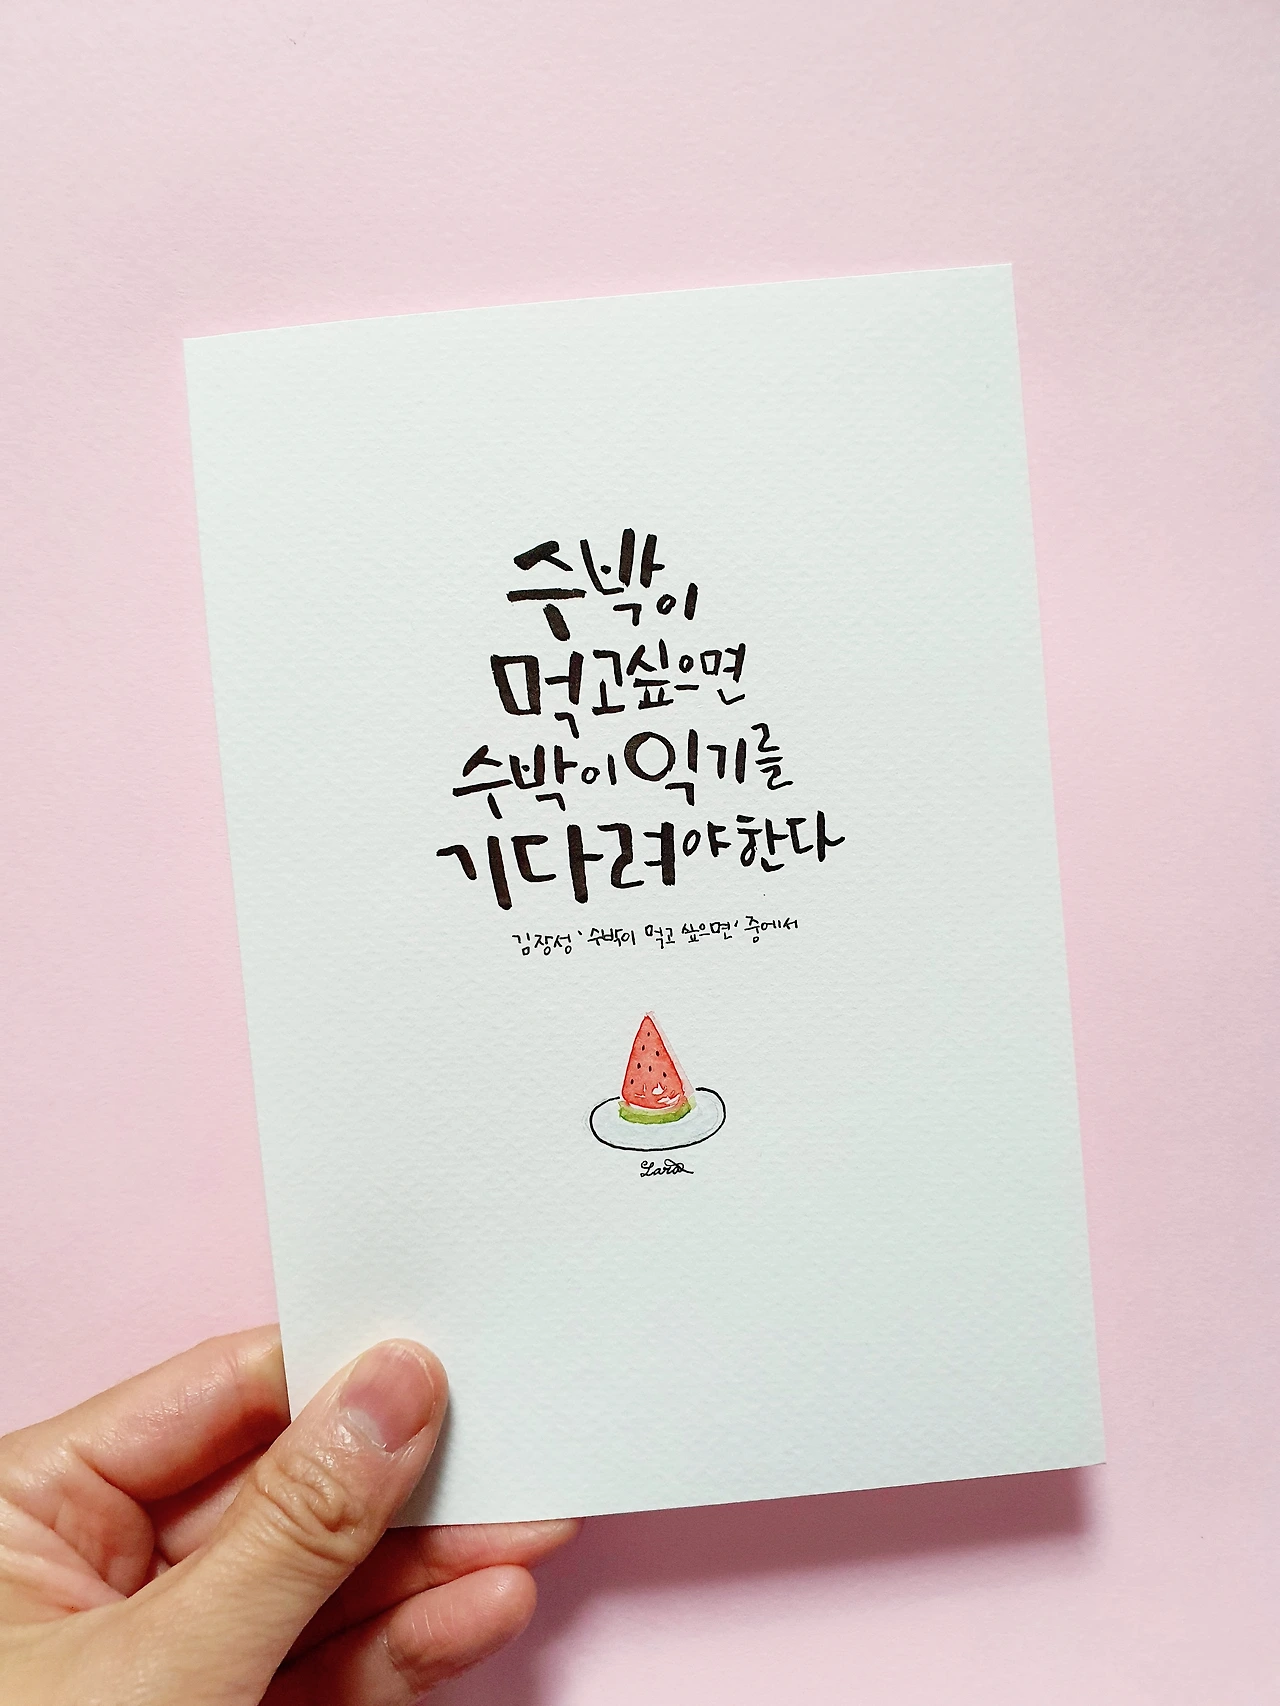 수박이
먹고싶으면
수박이 익기를
기다려야한다
김장성 '수박이 먹고 싶으면' 중에서
Lara